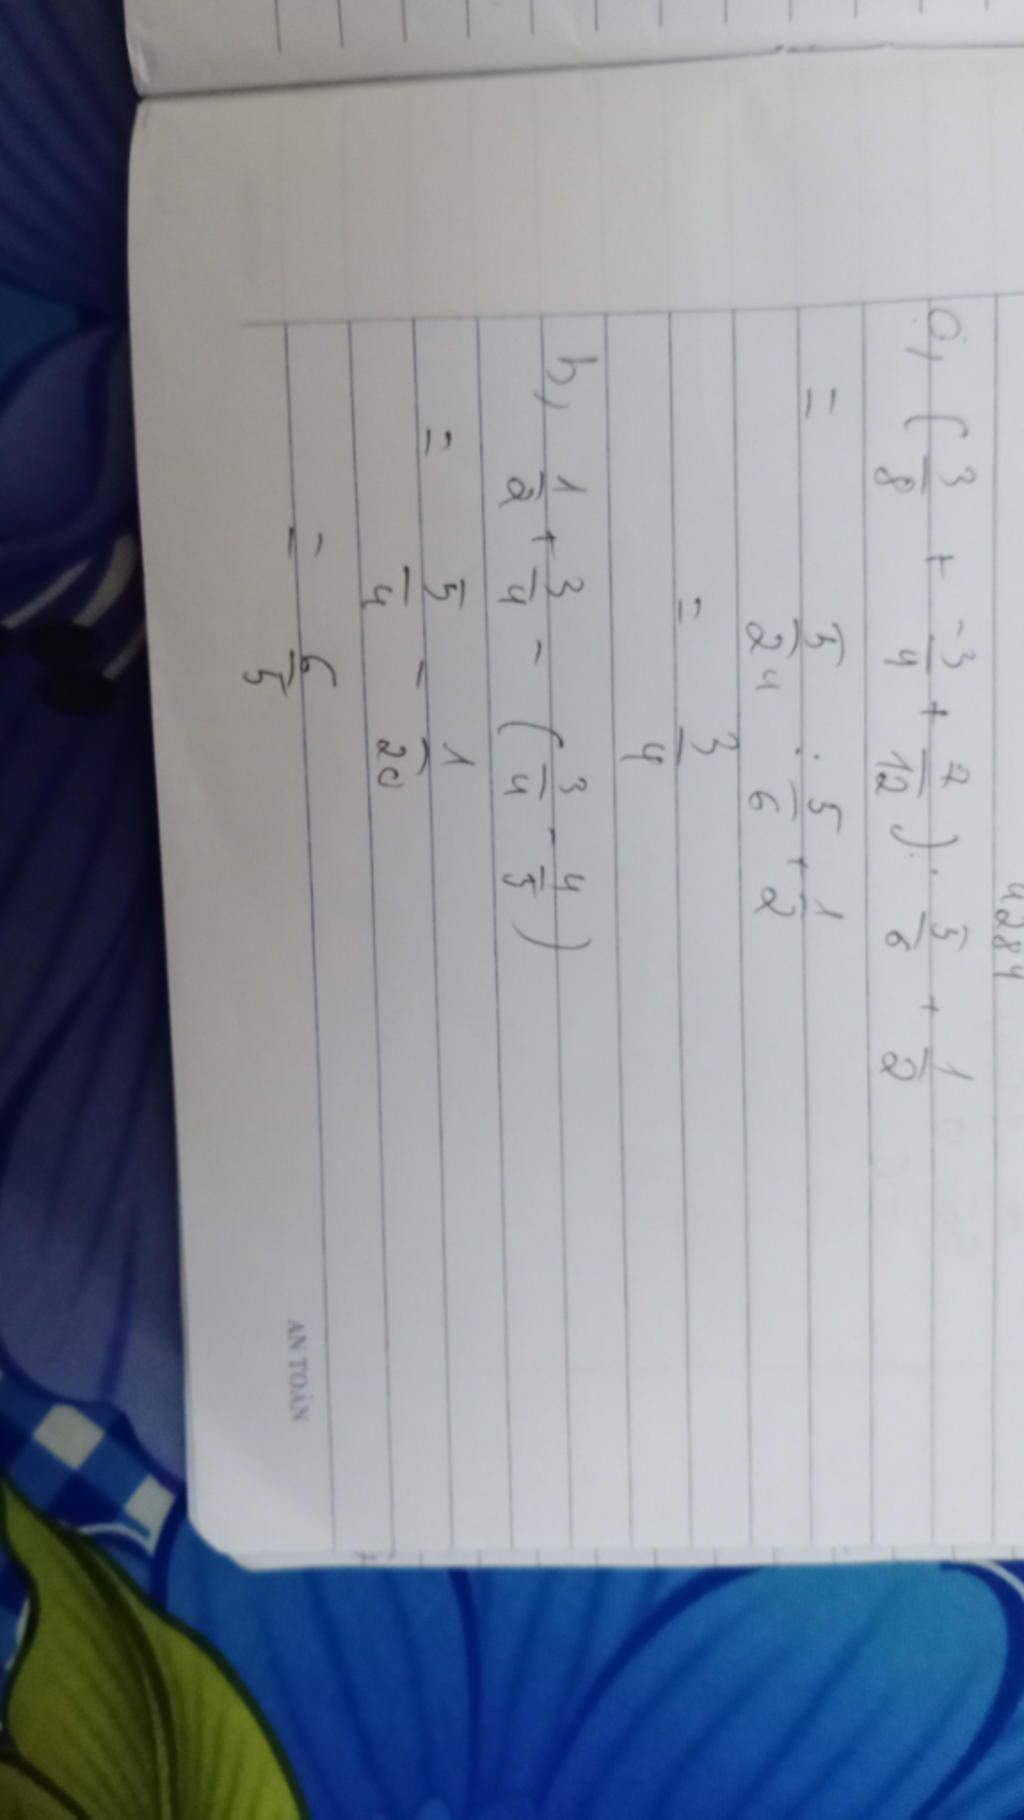 4284
a, (3/8 + -3/4 + 7/12) . 5/6 + 1/2
= 5/24 : 5/6 + 1/2
= 3/4
b, 1/2 + 3/4 - (3/4 - 4/5)
= 5/4 - 1/20
= 6/5
AN TOÀN